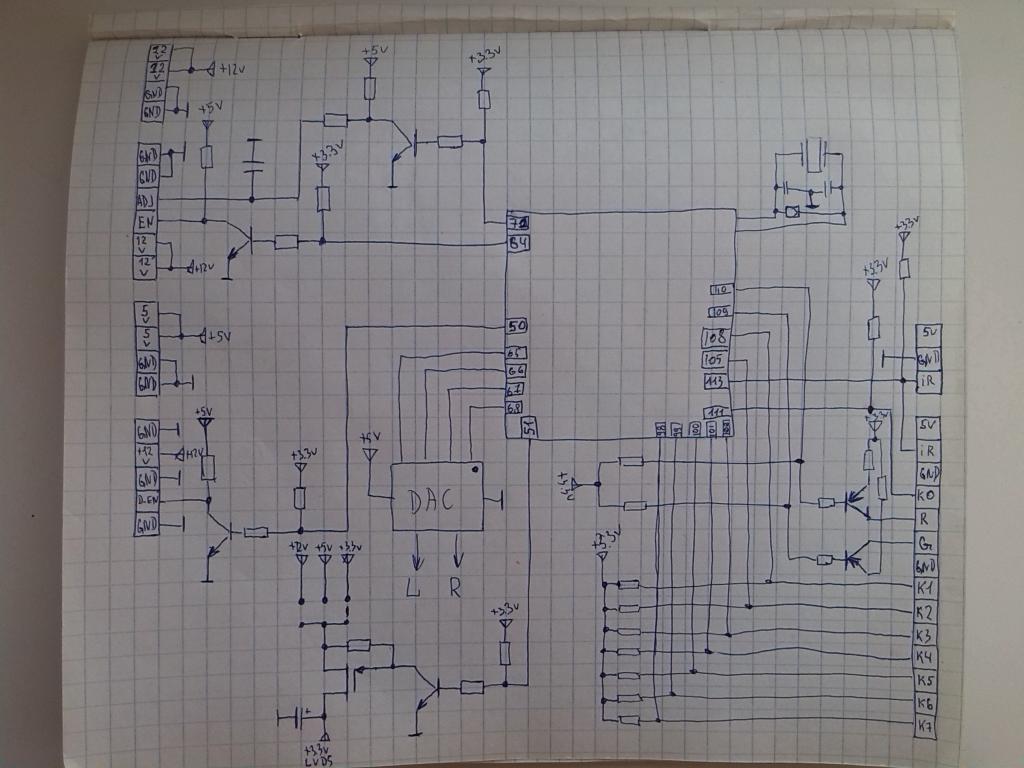 12
V
12
V
GND
GND
+12V
+5V
+5V
+3.3V
+3.3V
GND
GND
ADJ
EN
12
V
12
V
+12V
5
V
5
V
GND
GND
+5V
GND
+12
V
GND
P-EN
GND
+12V
+5V
+3.3V
+12V
+5V
+3.3V
+3.3V
LVDS
64
50
65
66
67
68
51
+5V
DAC
L
R
+3.3V
110
109
108
105
113
111
98
99
100
101
+3.3V
+3.3V
+3.3V
+3.3V
5V
GND
iR
5V
iR
GND
K0
R
G
GND
K1
K2
K3
K4
K5
K6
K7